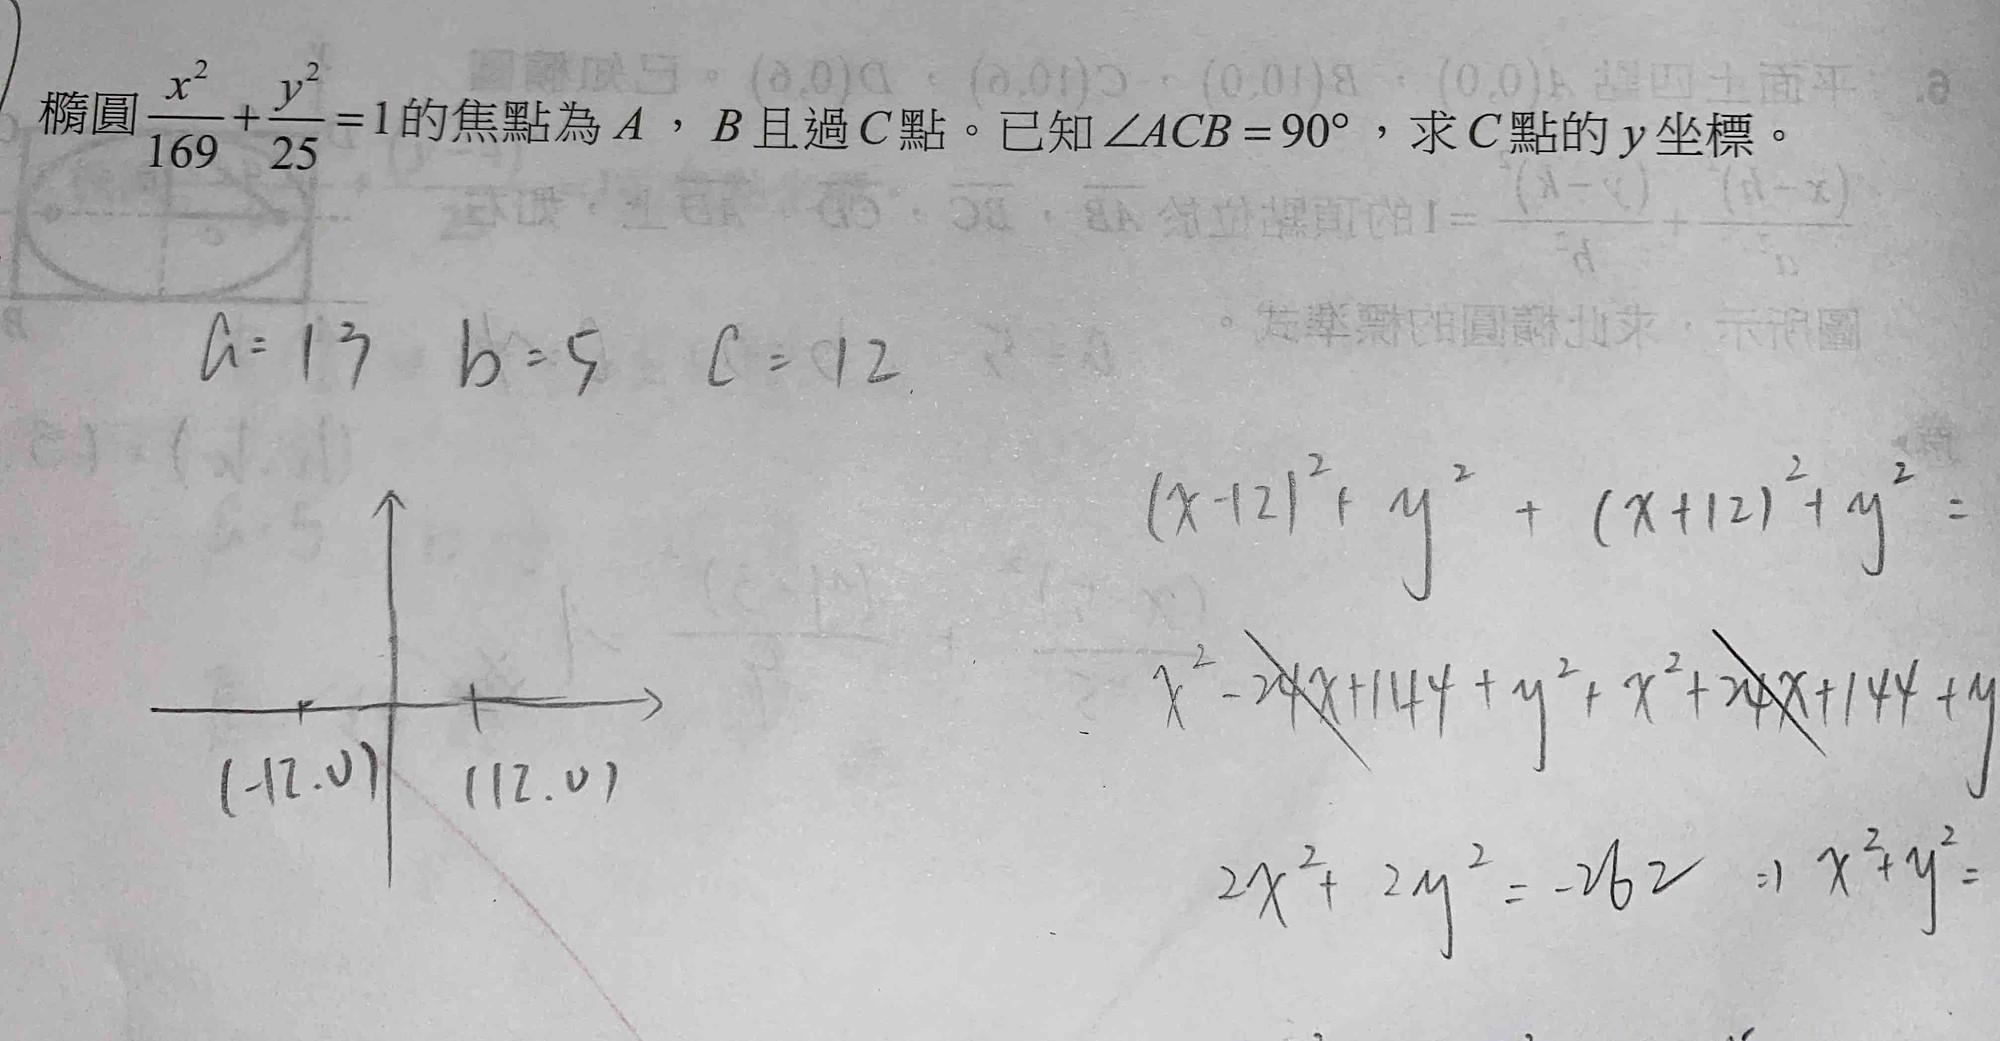 橢圓 x²/169 + y²/25 = 1 的焦點為 A，B 且過 C 點。已知 ∠ACB = 90°，求 C 點的 y 坐標。
a = 13 b = 5 c = 12
(x-12)² + y² + (x+12)² + y² =
x² - 24x + 144 + y² + x² + 24x + 144 + y
(-12.0) (12.0)
2x² + 2y² = -262 ⇒ x² + y² =